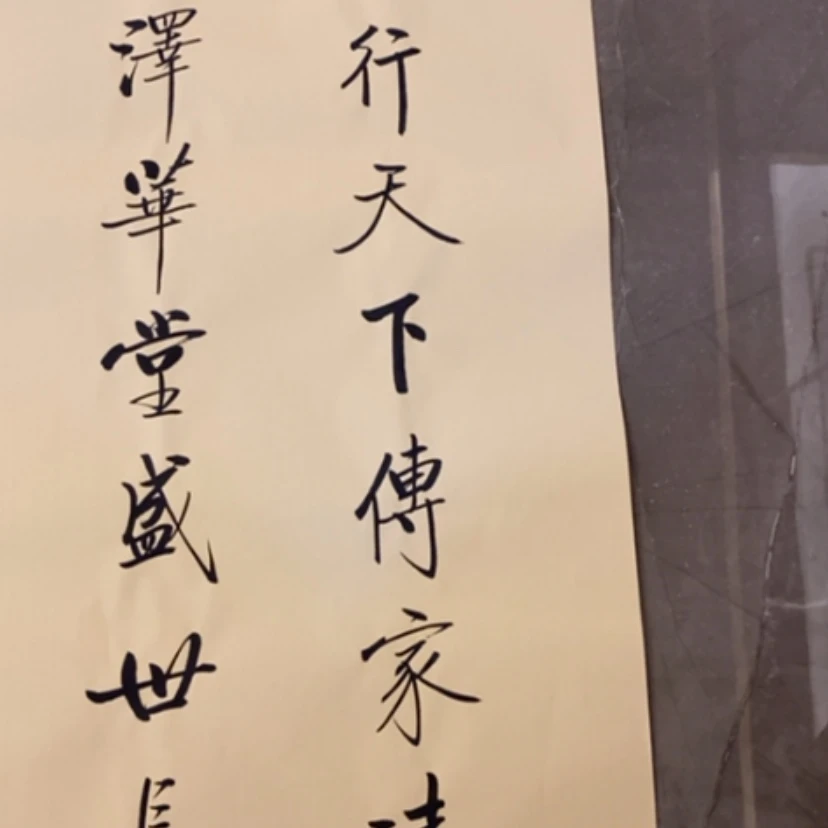 行天下傳家
澤華堂盛世